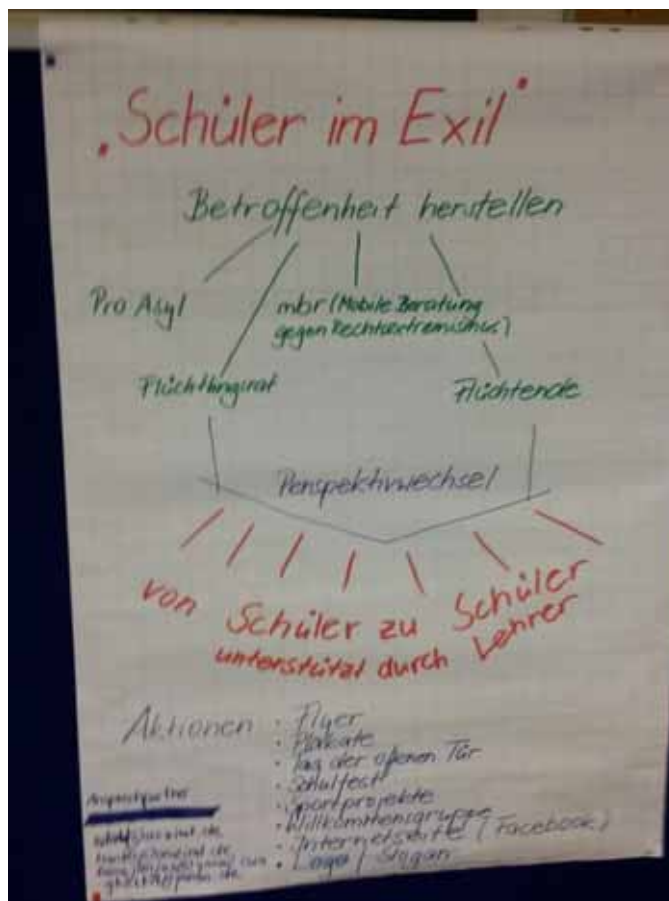 „Schüler im Exil"
Betroffenheit herstellen
Pro Asyl
mbr (Mobile Beratung
gegen Rechtsextremismus)
Flüchtlingsrat
Flüchtende
Perspektivwechsel
von Schüler zu Schüler
unterstützt durch Lehrer
Aktionen
• Flyer
• Plakate
• Tag der offenen Tür
• Schulfest
• Sportprojekte
• Willkommensgruppe
• Internetseite (Facebook)
• Logo / Slogan
Ansprechpartner